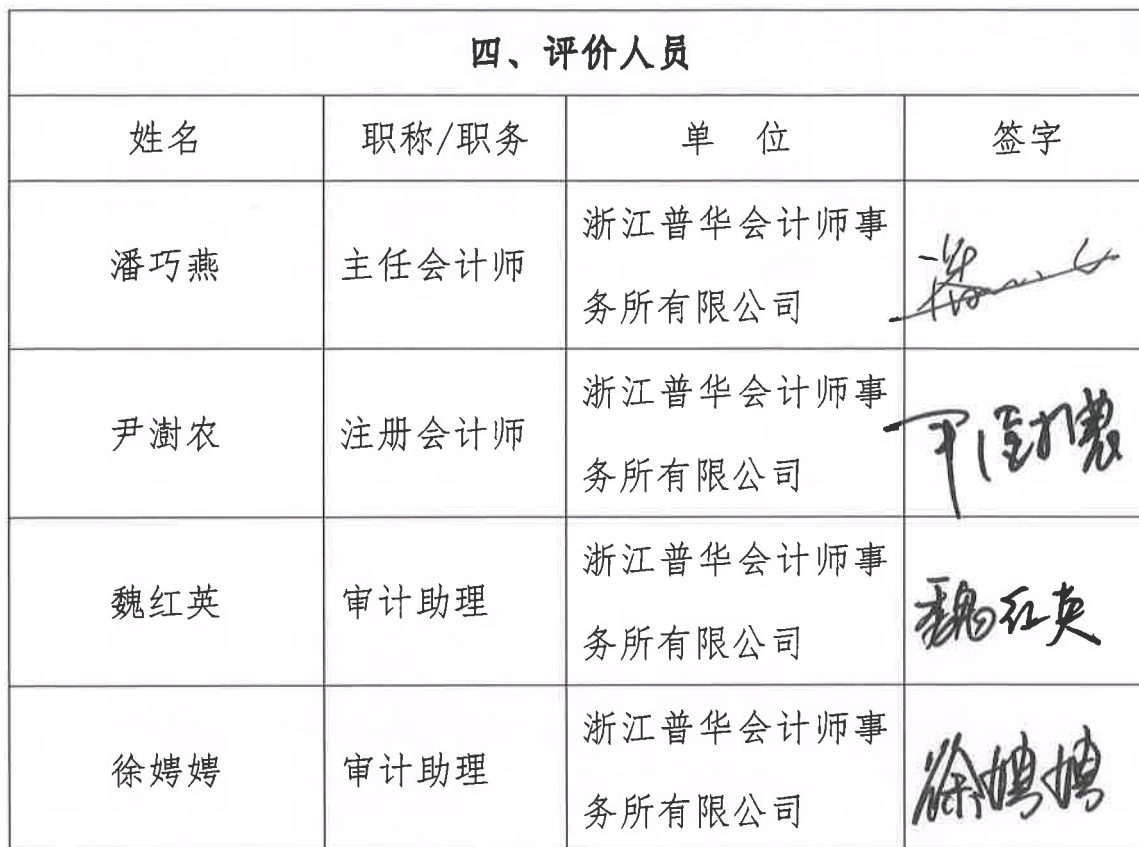 四、评价人员
姓名 职称/职务 单 位 签字
潘巧燕 主任会计师 浙江普华会计师事
务所有限公司
尹澍农 注册会计师 浙江普华会计师事
务所有限公司 尹澍农
魏红英 审计助理 浙江普华会计师事
务所有限公司 魏红英
徐娉娉 审计助理 浙江普华会计师事
务所有限公司 徐娉娉